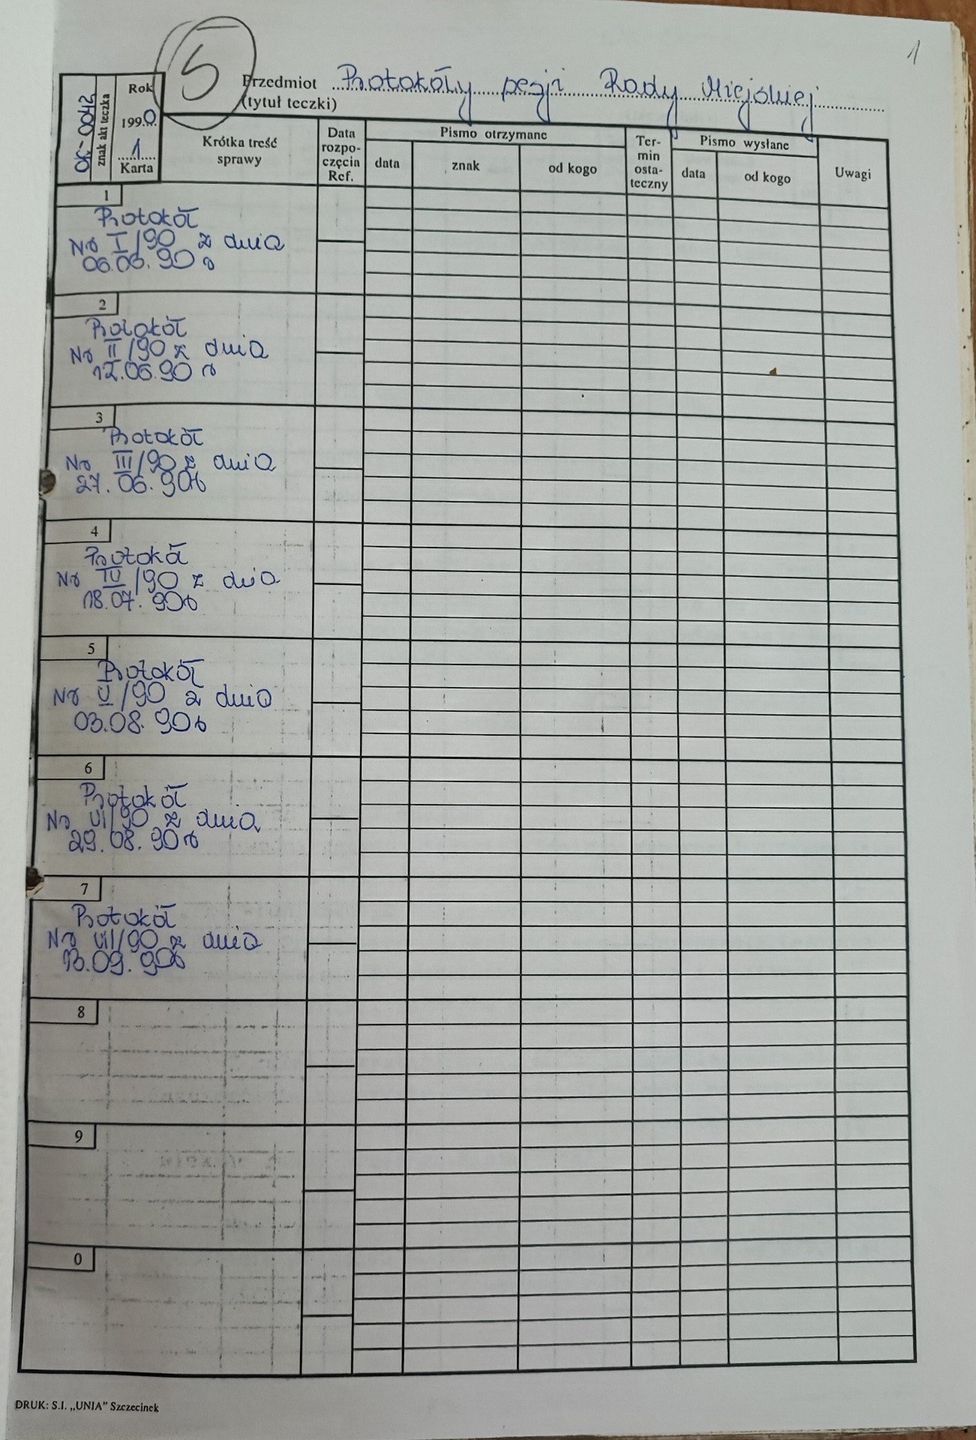 1
5
OR-0042
znak akt teczka
Rok
1990
1
Karta
Przedmiot Protokóły sesji Rady Miejskiej
(tytuł teczki)
Krótka treść
sprawy
Data
rozpo-
częcia
Ref.
Pismo otrzymane
data
znak
od kogo
Ter-
min
osta-
teczny
Pismo wysłane
data
od kogo
Uwagi
1
Protokół
Nr I/90 z dnia
06.06.90 r
2
Protokół
Nr II/90 z dnia
12.06.90 r
3
Protokół
Nr III/90 z dnia
27.06.90r
4
Protokół
Nr IV/90 z dnia
18.07.90r
5
Protokół
Nr V/90 z dnia
03.08.90r
6
Protokół
Nr VI/90 z dnia
29.08.90r
7
Protokół
Nr VII/90 z dnia
13.09.90r
8
9
0
DRUK: S.I. „UNIA” Szczecinek